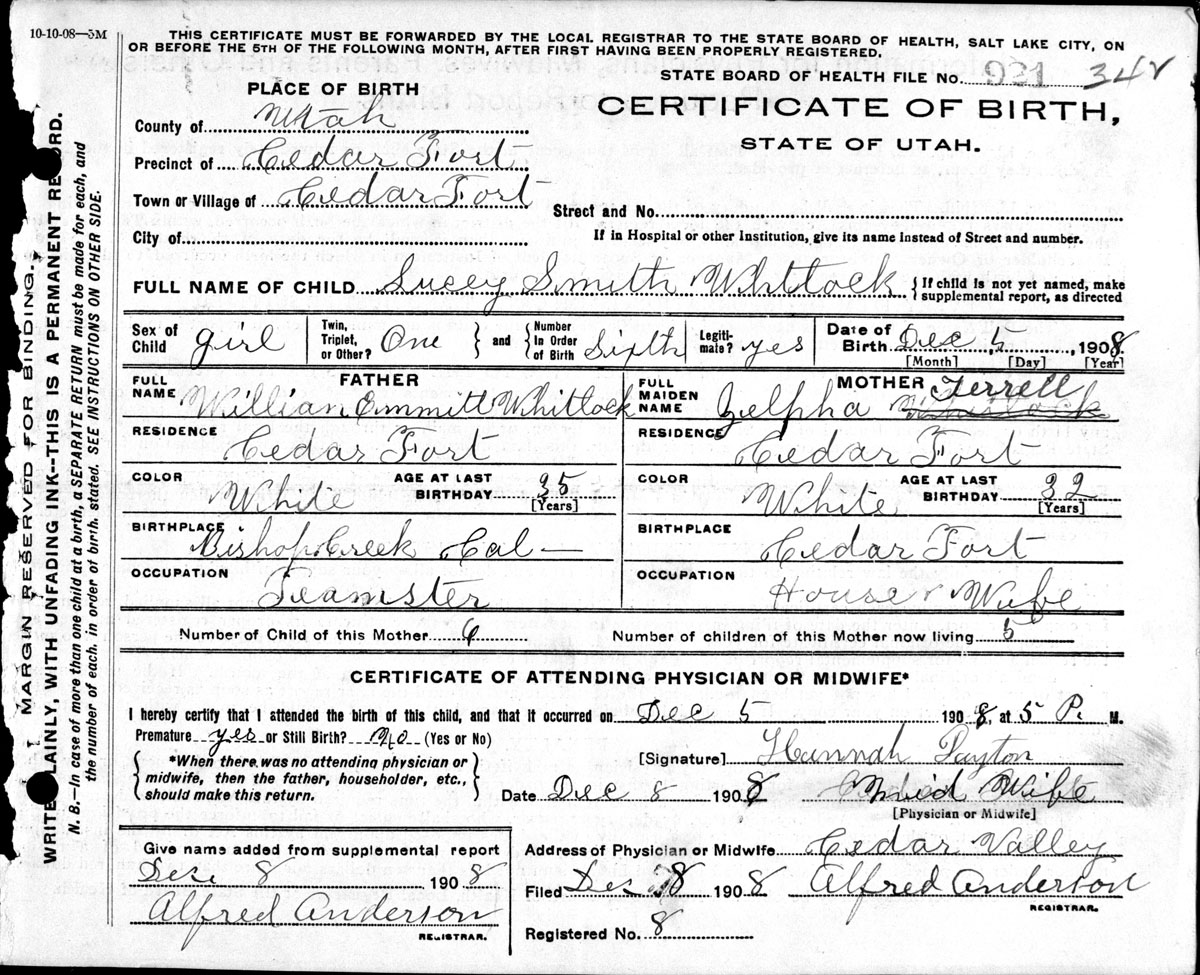 10-10-08—5M
THIS CERTIFICATE MUST BE FORWARDED BY THE LOCAL REGISTRAR TO THE STATE BOARD OF HEALTH, SALT LAKE CITY, ON
OR BEFORE THE 5TH OF THE FOLLOWING MONTH, AFTER FIRST HAVING BEEN PROPERLY REGISTERED.
STATE BOARD OF HEALTH FILE No. 921 34
PLACE OF BIRTH
CERTIFICATE OF BIRTH,
STATE OF UTAH.
County of Utah
Precinct of Cedar Fort
Town or Village of Cedar Fort
Street and No.
City of
If in Hospital or other Institution, give its name instead of Street and number.
FULL NAME OF CHILD Lucey Smith Whitlock { If child is not yet named, make
supplemental report, as directed
Sex of Child girl Twin, Triplet, or Other? One } and { Number In Order of Birth Sixth Legiti-mate? yes Date of Birth Dec 5, 1908.
[Month] [Day] [Year]
FATHER
MOTHER
FULL NAME Willian Emmitt Whitlock
FULL MAIDEN NAME Zelpha Terrell
RESIDENCE Cedar Fort
RESIDENCE Cedar Fort
COLOR White AGE AT LAST BIRTHDAY 35 [Years]
COLOR White AGE AT LAST BIRTHDAY 32 [Years]
BIRTHPLACE Bishop Creek Cal—
BIRTHPLACE Cedar Fort
OCCUPATION Teamster
OCCUPATION House Wife
Number of Child of this Mother 6 Number of children of this Mother now living 5
CERTIFICATE OF ATTENDING PHYSICIAN OR MIDWIFE*
I hereby certify that I attended the birth of this child, and that it occurred on Dec 5 1908, at 5 P. M.
Premature yes or Still Birth? No (Yes or No)
{ *When there was no attending physician or
midwife, then the father, householder, etc.,
should make this return. }
[Signature] Hannah Payton
Date Dec 8 1908 Mid Wife
[Physician or Midwife]
Give name added from supplemental report
Dec 8 1908
Alfred Anderson
REGISTRAR.
Address of Physician or Midwife Cedar Valley
Filed Dec 8 1908 Alfred Anderson
REGISTRAR.
Registered No. 8
MARGIN RESERVED FOR BINDING.
WRITE PLAINLY, WITH UNFADING INK--THIS IS A PERMANENT RECORD.
N. B.—In case of more than one child at a birth, a SEPARATE RETURN must be made for each, and
the number of each, in order of birth, stated. SEE INSTRUCTIONS ON OTHER SIDE.